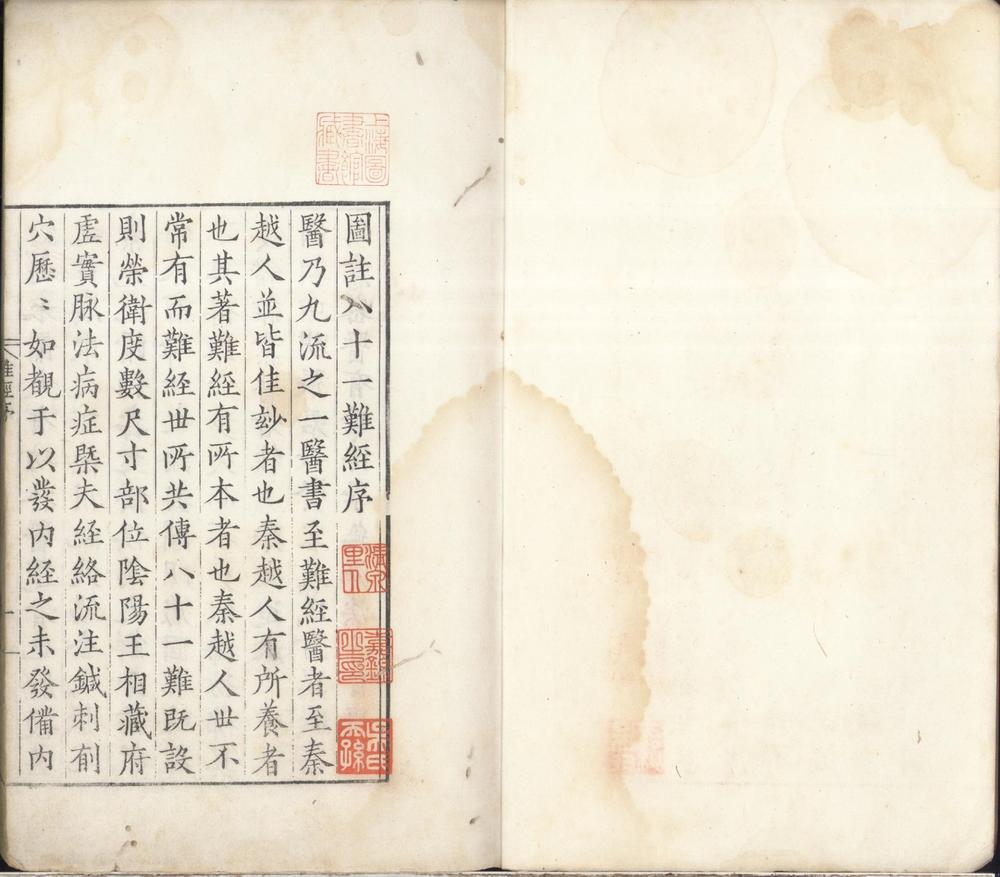 圖註八十一難經序
醫乃九流之一醫書至難經醫者至秦
越人並皆佳玅者也秦越人有所養者
也其著難經有所本者也秦越人世不
常有而難經世所共傳八十一難既設
則榮衛度數尺寸部位陰陽王相藏府
虛實脉法病症槩夫経絡流注鍼刺刖
穴歷〻如覩于以發內経之未發備內
難經序
上海圖書館藏書